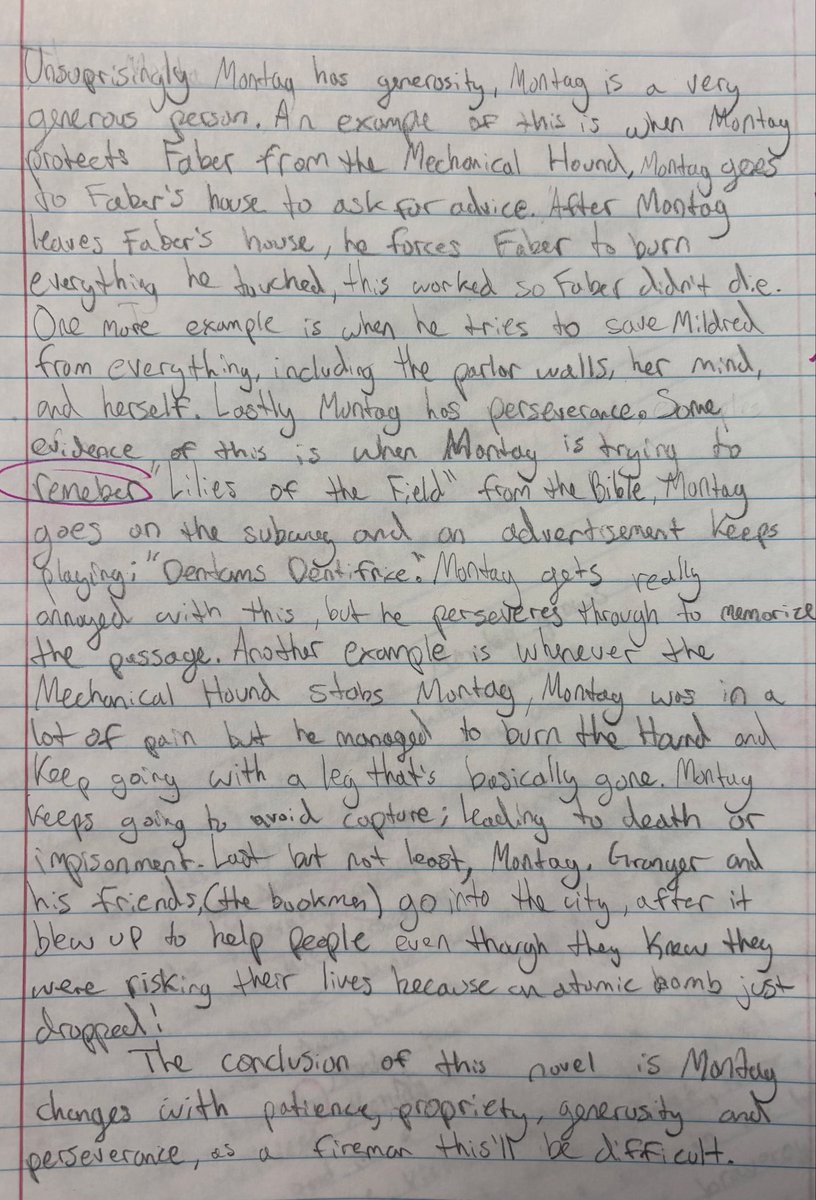 Unsuprisingly Montag has generosity, Montag is a very
generous person. An example of this is when Montag
protects Faber from the Mechanical Hound, Montag goes
to Faber's house to ask for advice. After Montag
leaves Faber's house, he forces Faber to burn
everything he touched, this worked so Faber didn't die.
One more example is when he tries to save Mildred
from everything, including the parlor walls, her mind,
and herself. Lastly Montag has perseverance. Some
evidence of this is when Montag is trying to
remeber "Lilies of the Field" from the Bible, Montag
goes on the subway and an advertisement keeps
playing; "Dentams Dentifrice." Montag gets really
annoyed with this, but he perseveres through to memorize
the passage. Another example is whenever the
Mechanical Hound stabs Montag, Montag was in a
lot of pain but he managed to burn the Hound and
keep going with a leg that's basically gone. Montag
keeps going to avoid capture; leading to death or
impisonment. Last but not least, Montag, Granger and
his friends, (the bookmen) go into the city, after it
blew up to help people even though they knew they
were risking their lives because an atomic bomb just
dropped!
The conclusion of this novel is Montag
changes with patience, propriety, generosity and
perseverance, as a fireman this'll be difficult.